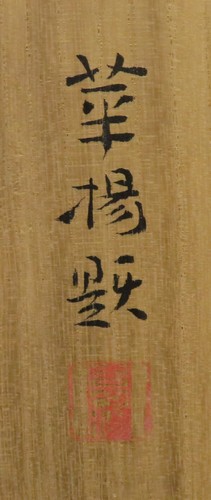 華楊題